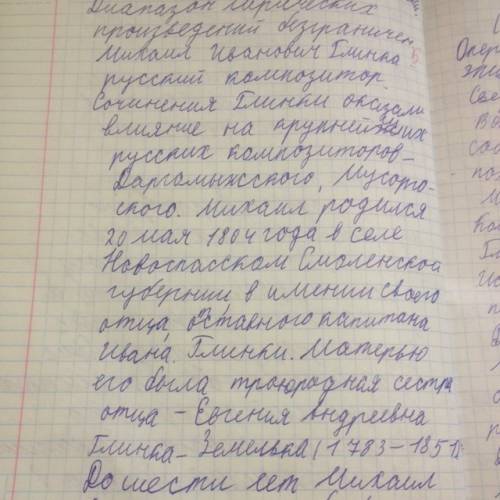 Диапазон лирических
произведений безграничен
Михаил Иванович Глинка
русский композитор
Сочинения Глинки оказали
влияние на крупнейших
русских композиторов-
Даргомыжсского, Мусорго-
ского. Михаил родился
20 мая 1804 года в селе
Новоспасском Смоленской
губернии в имении своего
отца, отставного капитана
Ивана Глинки. Матерью
его была троюродная сестра
отца - Евгения Андреевна
Глинка-Земелька (1783-1851)
До шести лет Михаил
Опер
эпи
Све